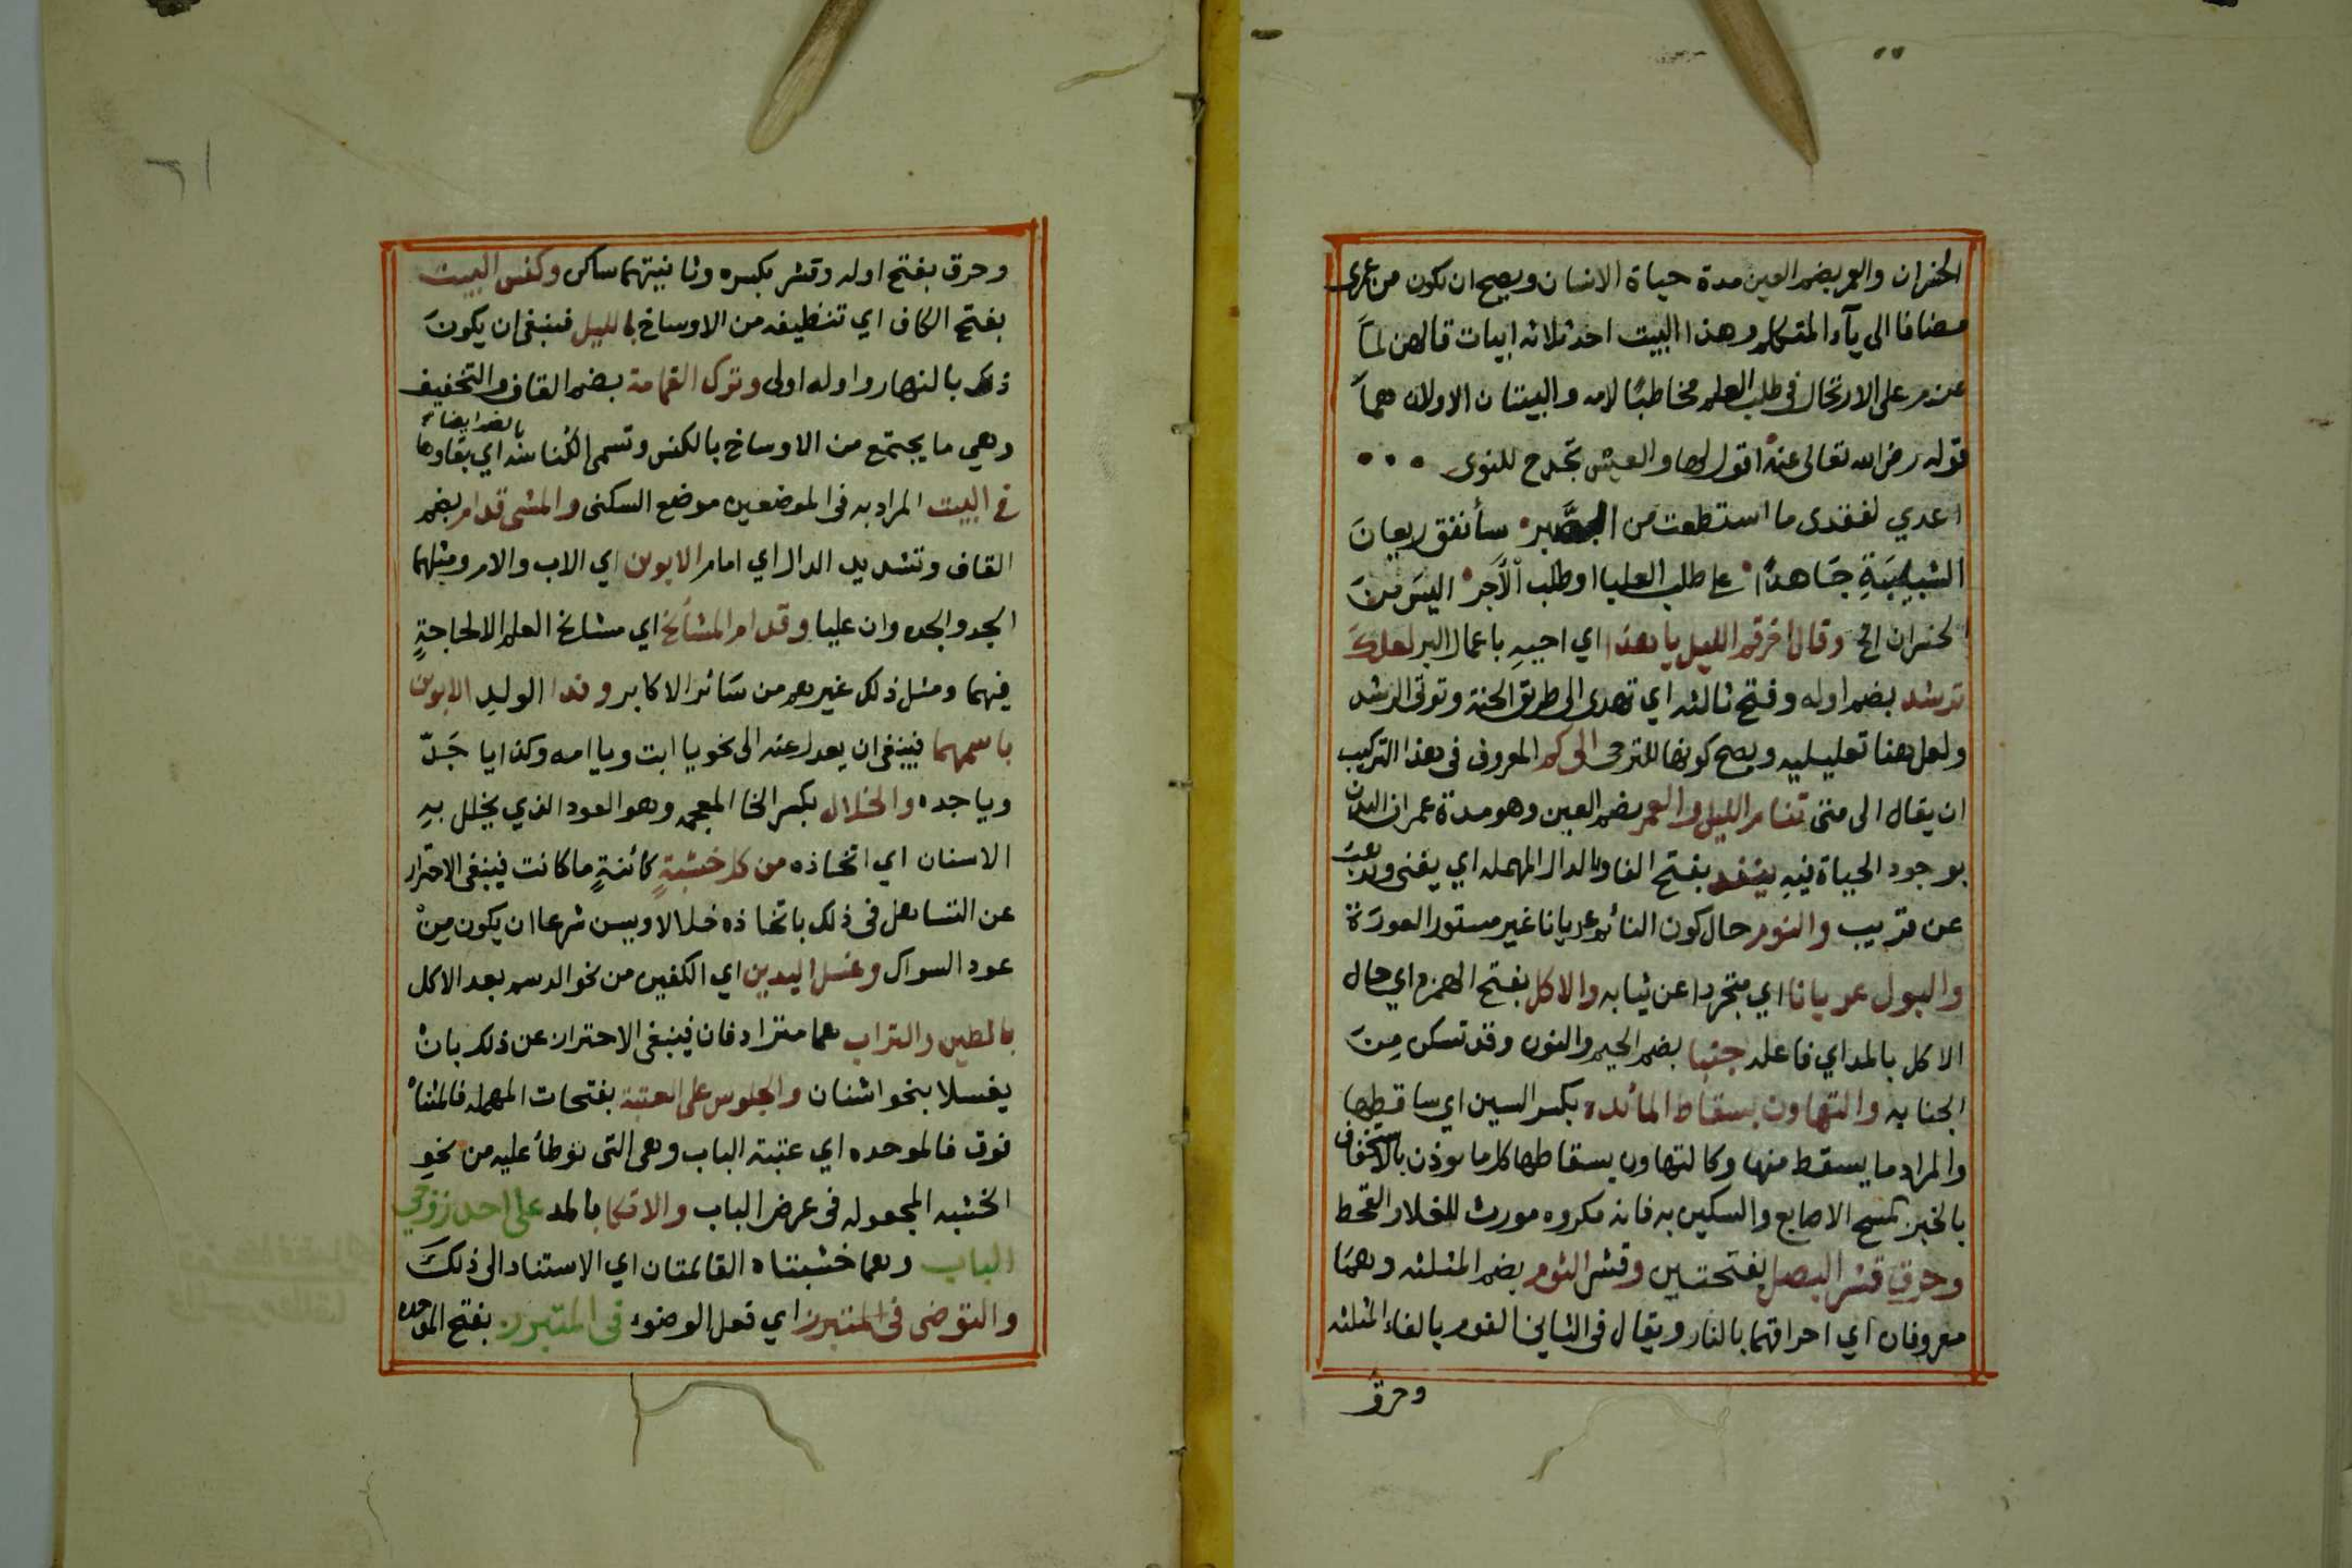 الخسران والعمر بضم العين مدة حياة الانسان ويصح ان تكون من عمرى
مضافا الى يآء المتكلم وهذا البيت احد ثلاثه ابيات قالهن لما
عزم على الارتحال في طلب العلم مخاطبًا لامه والبيتان الاولان هما
قوله رضي الله تعالى عنه اقول لها والعيش تحدج للنوى
اعدي لفقدى ما استطعت من الصبر سأنفق ريعان
الشبيبَةِ جَاهدًا على طلب العليا او طلب الاَجر اليسَ منَ
الخسران الخ وقال اخر قم الليل يا هذا اي احييهِ باعمال البر لعلكَ
ترشد بضم اوله وفتح ثالثه اي تهدى الى طريق الجنة وتوتى الرشد
ولعل هنا تعليليه ويصح كونها للترجى الى كم المعروف في هذا التركيب
ان يقال الى متى تنام الليل والعمر بضم العين وهو مدة عمران البدن
بوجود الحياة فيهِ ينفد بفتح الفا وبالدال المهمله اي يفنى ويذهبَ
عن قريب والنوم حال كون النائم عريانا غير مستور العورَة
والبول عريانا اي متجردا عن ثيابه والاكل بفتح الهمزه اي حال
الاكل بالمد اي فاعله جنبا بضم الجيم والنون وقد تسكن مِنَ
الجنابه والتهاون بسقاط المائده بكسر السين اي ساقطها
والمراد ما يسقط منها وكالتهاون بسقاطها كل ما يوذن بالاستخفاف
بالخبز كمسح الاصابع والسكين به فانه مكروه مورث للغلا والقحط
وحرق قشر البصل بفتحتين وقشر الثوم بضم المثلثه وهمَا
معروفان اي احراقهما بالنار ويقال في الثاني الفوم بالفاء المثلثه
وحرق
وحرق بفتح اوله وقشر بكسره وثانيتهما ساكن وكنس البيت
بفتح الكاف اي تنظيفه من الاوساخ بالليل فينبغى ان يكونَ
ذلك بالنهار واوله اولى وترك القمامة بضم القاف والتخفيف
بالضم ايضا
وهي ما يجتمع من الاوساخ بالكنس وتسمى الكُناسَه اي بقاوها
في البيت المراد به في الموضعين موضع السكنى والمشى قدام بضم
القاف وتشديد الدال اي امام الابوين اي الاب والام ومثلهما
الجد والجده وان عليا وقدام المشائخ اي مشايخ العلم الالحاجةٍ
فيهما ومثل ذلك غيرهم من سَائر الاكابر وندا الوليد الابوين
باسمهما فينبغى ان يعدل عنه الى نحو يا ابت ويا امه وكذا يا جَدّ
ويا جده والخلال بكسر الخا المعجمه وهو العود الذي يخلل بهِ
الاسنان اي اتخاذه من كل خشبةٍ كائنةٍ ما كانت فينبغى الاحتراز
عن التساهل في ذلك باتخاذه خلالا ويسن شرعا ان يكون مِنْ
عود السواك وغسل اليدين اي الكفين من نحو الدسم بعد الاكل
بالطين والتراب هما مترادفان فينبغى الاحتراز عن ذلك بانْ
يغسلا بنحو اشنان والجلوس على العتبة بفتحات المهمله فالمثناه
فوق فالموحده اي عتبة الباب وهى التى توطأ عليه من نحو
الخشبه المجعوله في عرض الباب والاتكا بالمد على احد زوجي
الباب وهما خشبتاه القائمتان اي الاستناد الى ذلكَ
والتوضى في المتبرز اي فعل الوضوء في المتبرز بفتح الموحده